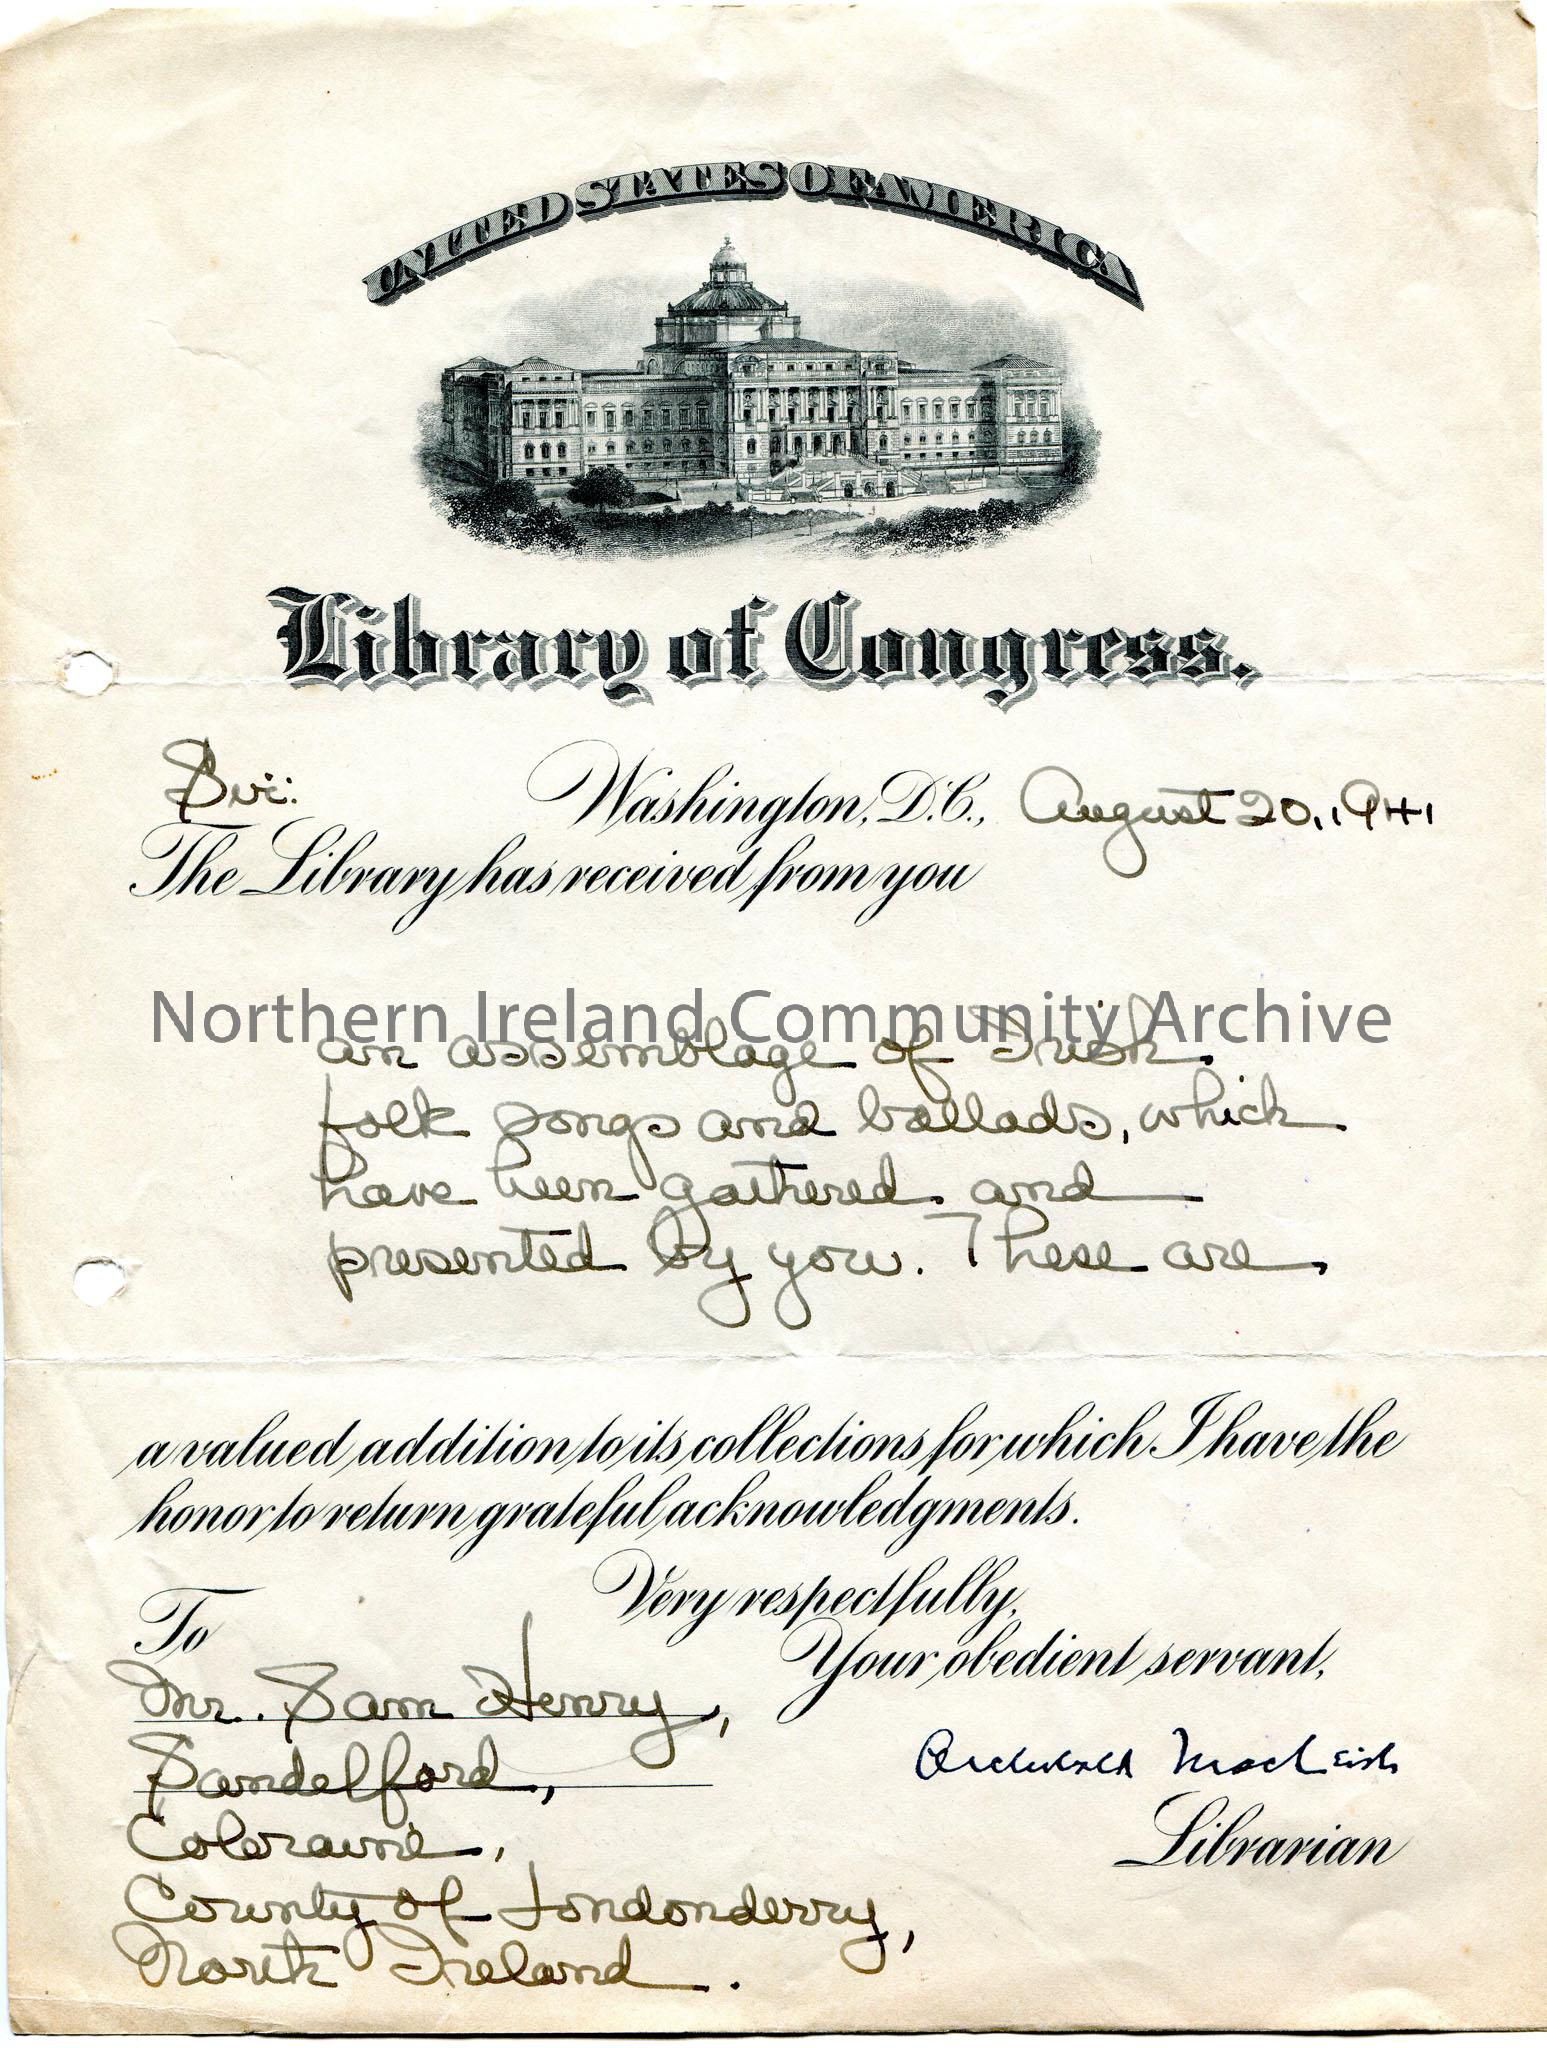 UNITED STATES OF AMERICA
Library of Congress.
Sir: Washington, D.C., August 20, 1941
The Library has received from you
Northern Ireland Community Archive
an assemblage of Irish
folk songs and ballads, which
have been gathered and
presented by you. These are
a valued addition to its collections for which I have the
honor to return grateful acknowledgments.
Very respectfully,
Your obedient servant,
Archibald MacLeish
Librarian
To
Mr. Sam Henry,
Sandelford,
Coleraine,
County of Londonderry,
North Ireland.